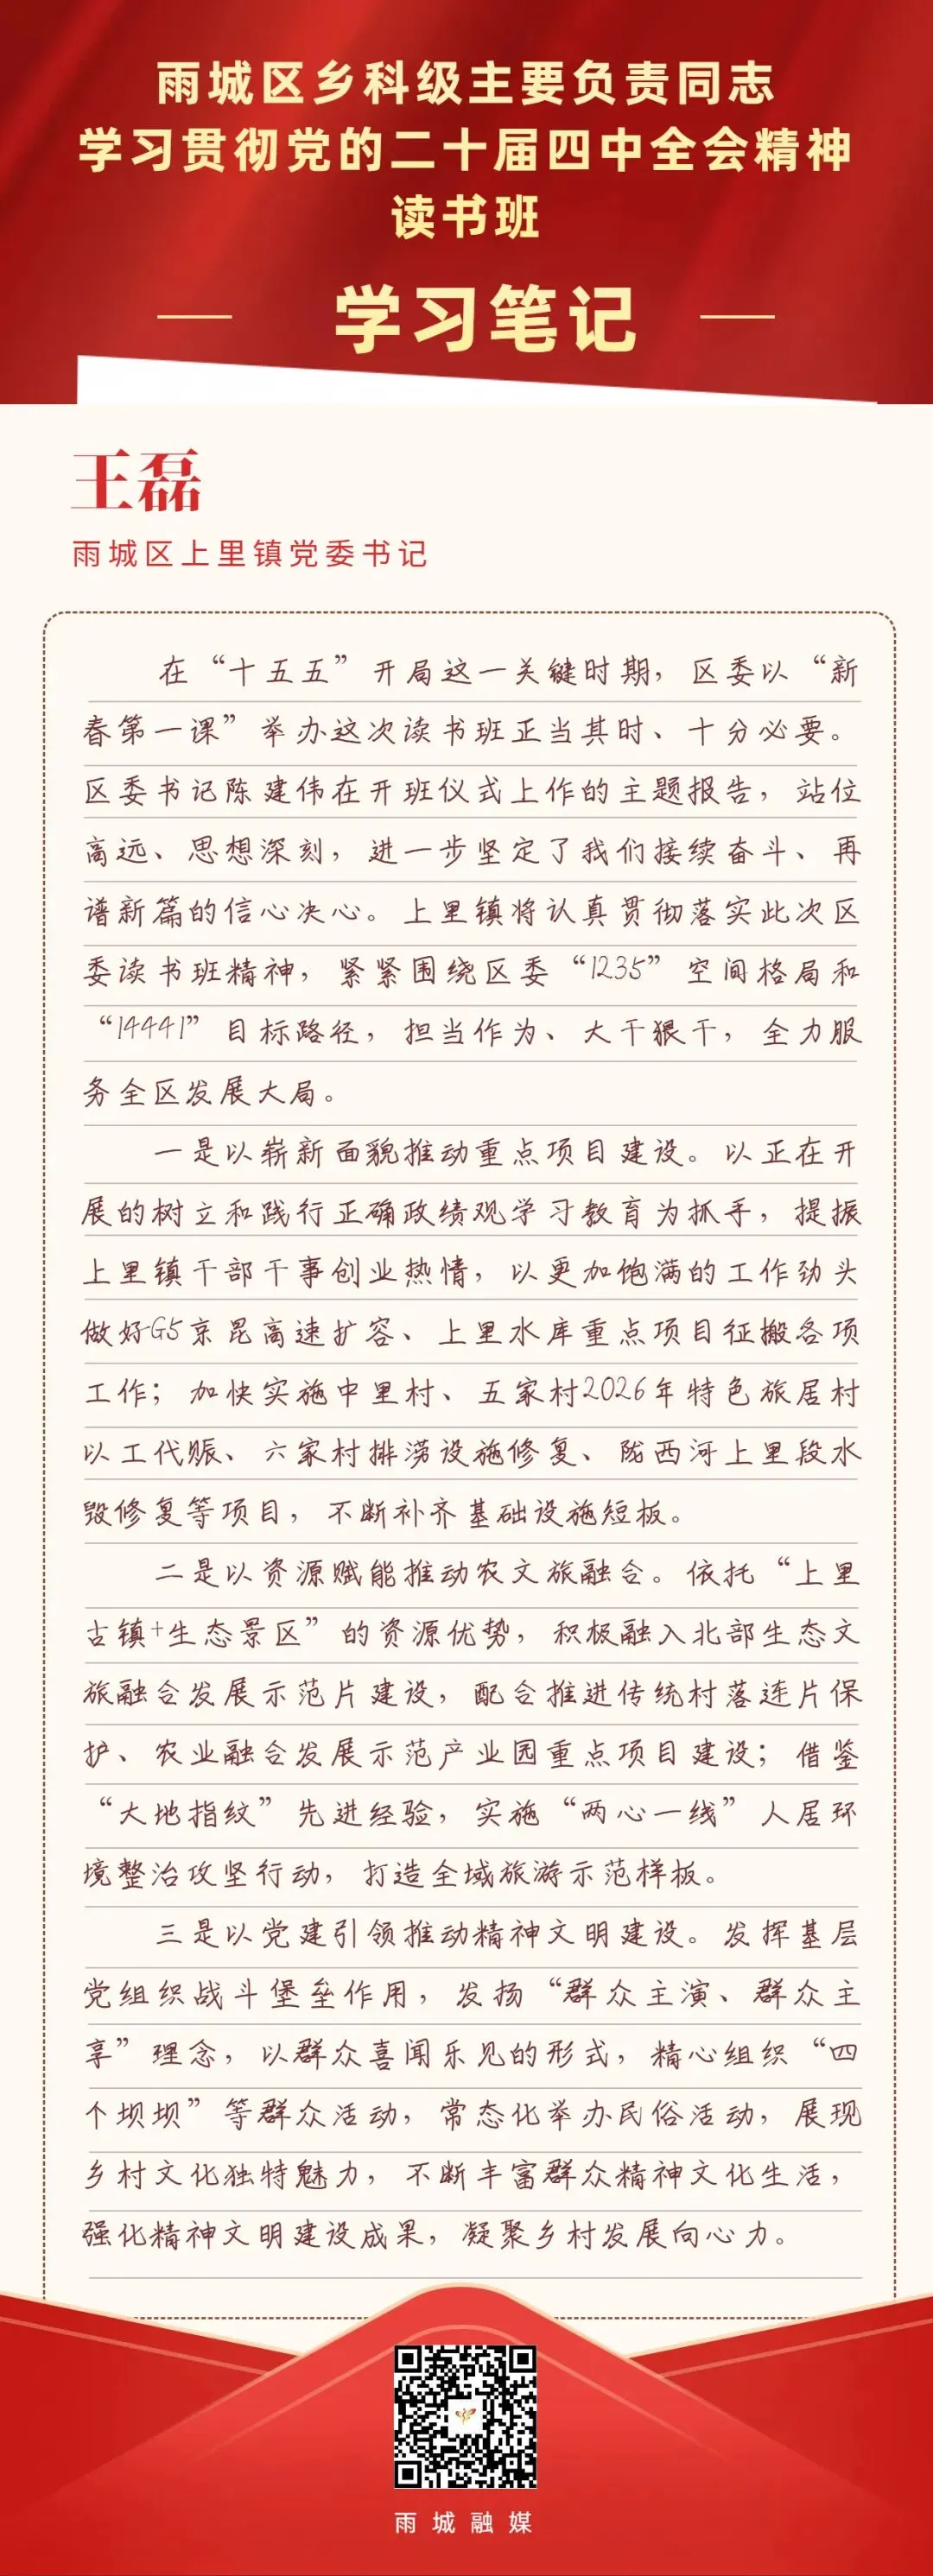 雨城区乡科级主要负责同志
学习贯彻党的二十届四中全会精神
读书班
学习笔记
王磊
雨城区上里镇党委书记
在“十五五”开局这一关键时期，区委以“新
春第一课”举办这次读书班正当其时、十分必要。
区委书记陈建伟在开班仪式上作的主题报告，站位
高远、思想深刻，进一步坚定了我们接续奋斗、再
谱新篇的信心决心。上里镇将认真贯彻落实此次区
委读书班精神，紧紧围绕区委“1235”空间格局和
“14441”目标路径，担当作为、大干狠干，全力服
务全区发展大局。
一是以崭新面貌推动重点项目建设。以正在开
展的树立和践行正确政绩观学习教育为抓手，提振
上里镇干部干事创业热情，以更加饱满的工作劲头
做好G5京昆高速扩容、上里水库重点项目征搬各项
工作；加快实施中里村、五家村2026年特色旅居村
以工代赈、六家村排涝设施修复、陇西河上里段水
毁修复等项目，不断补齐基础设施短板。
二是以资源赋能推动农文旅融合。依托“上里
古镇+生态景区”的资源优势，积极融入北部生态文
旅融合发展示范片建设，配合推进传统村落连片保
护、农业融合发展示范产业园重点项目建设；借鉴
“大地指纹”先进经验，实施“两心一线”人居环
境整治攻坚行动，打造全域旅游示范样板。
三是以党建引领推动精神文明建设。发挥基层
党组织战斗堡垒作用，发扬“群众主演、群众主
享”理念，以群众喜闻乐见的形式，精心组织“四
个坝坝”等群众活动，常态化举办民俗活动，展现
乡村文化独特魅力，不断丰富群众精神文化生活，
强化精神文明建设成果，凝聚乡村发展向心力。
雨城融媒